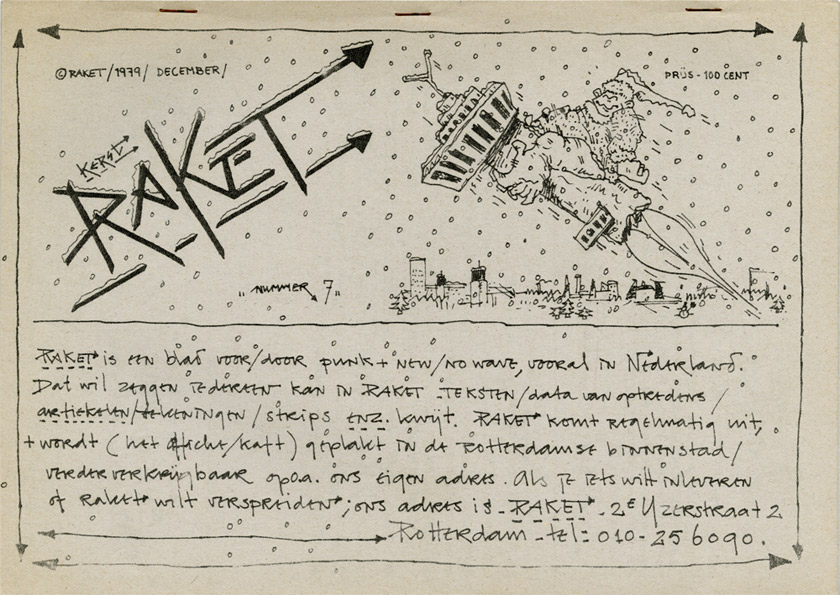 ©RAKET/1979/ DECEMBER/
PRIJS - 100 CENT
KERST
RAKET
„ NUMMER 7 „
RAKET is een blad voor/door punk + new/no wave, vooral in Nederland.
Dat wil zeggen iedereen kan in RAKET teksten/data van optredens/
artiekelen/tekeningen/strips enz. kwijt. RAKET komt regelmatig uit,
+ wordt (het affiche/kaft) geplakt in de Rotterdamse binnenstad/
verder verkrijgbaar op o.a. ons eigen adres. Als je iets wilt inleveren
of Raket wilt verspreiden; ons adres is - RAKET - 2E IJzerstraat 2
Rotterdam - tel: 010 - 256090.